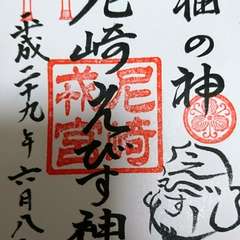 福の神
えびす
尼崎えびす神
尼崎
戎宮
平成二十九年六月八